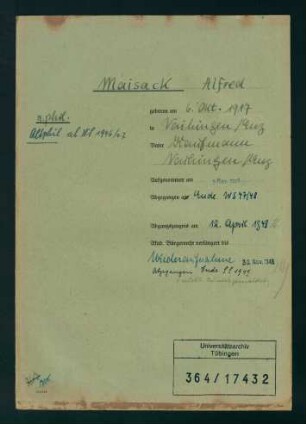 Maisack Alfred
geboren am 6. Okt. 1917
n.phil.
Altphil ab WS 1946/47
in Vaihingen/Enz
Vater Kaufmann
Vaihingen/Enz
Aufgenommen am
Abgegangen am Ende WS 47/48
Abgangszeugnis am 12. April 1948
Akad. Bürgerrecht verlängert bis
Wiederaufnahme
Abgegangen Ende SS 1949
Universitätsarchiv
Tübingen
364/17432